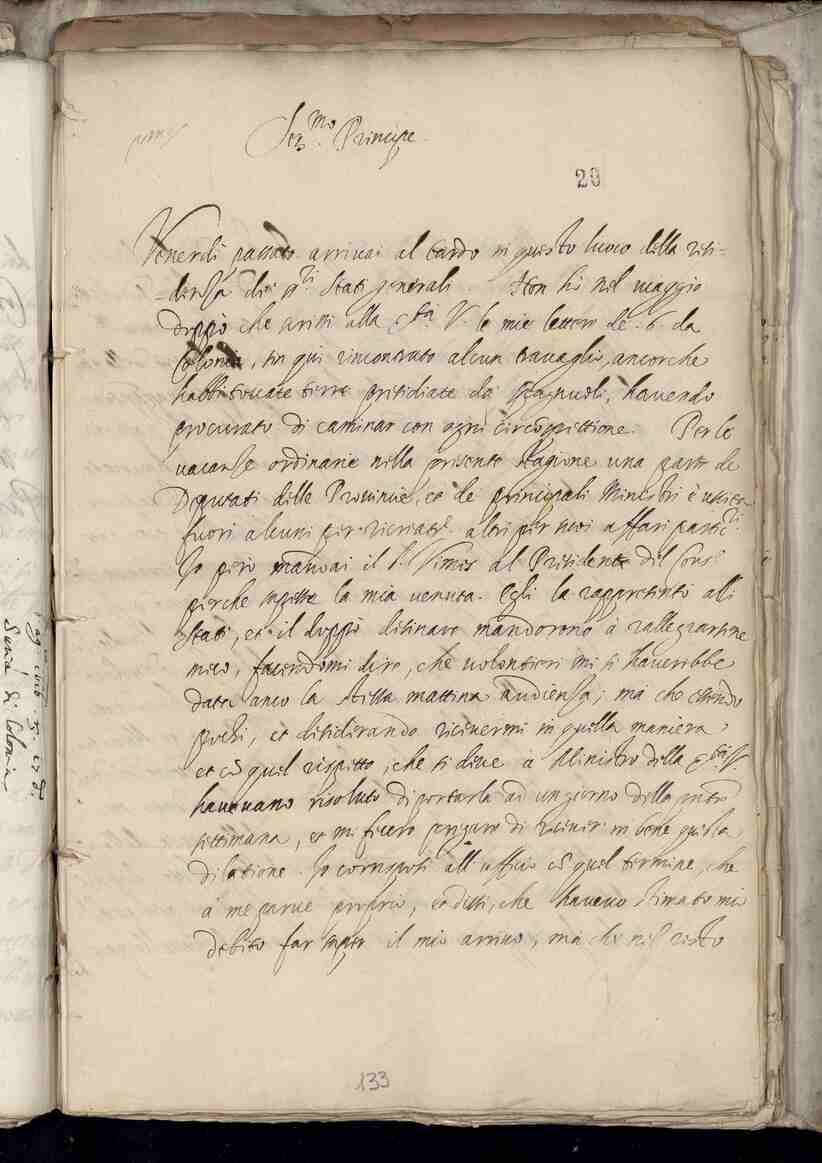 Ser.mo Principe
29
Venerdi passato arrivai al tardo in questo luoco della resi-
-denza dei s.ri Stati generali. Non hò nel viaggio
doppò che scrissi alla S.tà V. le mie lettere de .6. da
Colonia, sin qui rincontrato alcun travaglio, ancorche
habbi toccate terre presidiate da Spagnuoli, havendo
procurato di caminar con ogni circospettione. Per le
vacanze ordinarie nella presente stagione una parte de
Deputati delle Provincie, et de principali Ministri è uscita
fuori alcuni per ricrearsi altri per suoi affari partic.ri
Io però mandai il al Presidente del Cons.o
perche sapesse la mia venuta. Egli la rappresentò alli
Stati, et il doppò desinare mandorono à rallegrarsene
meco, facendomi dire, che volontieri mi si haverebbe
data anco la stessa mattina audienza; mà che essendo
pochi, et desiderando ricevermi in quella maniera,
et cō quel rispetto, che si deve à Ministro della
havevano risoluto di portarla ad un giorno della
settimana, et mi fecero pregare di ricever in bene questa
dilatione. Io corrisposi all'ufficio cō quel termine, che
à me parve proprio, et dissi, che havevo stimato mio
debito far saper il mio arrivo, mà che nel resto
133
di Colonia